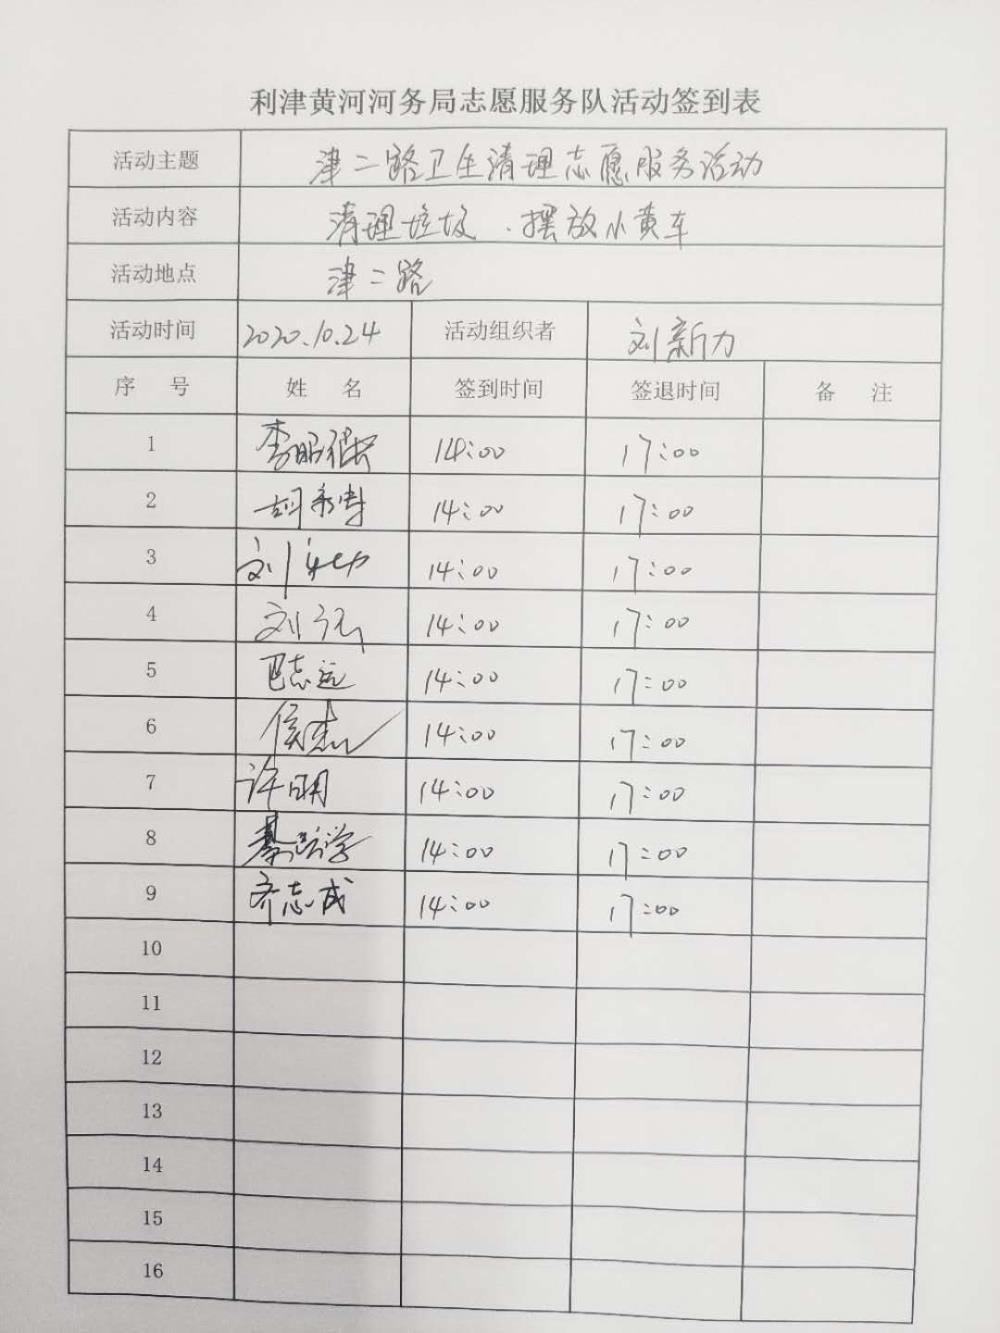 利津黄河河务局志愿服务队活动签到表
活动主题 津二路卫生清理志愿服务活动
活动内容 清理垃圾、摆放小黄车
活动地点 津二路
活动时间 2020.10.24 活动组织者 刘新力
序 号 姓 名 签到时间 签退时间 备 注
1 李 14:00 17:00
2 胡 14:00 17:00
3 刘 14:00 17:00
4 刘 14:00 17:00
5 巴志远 14:00 17:00
6 侯杰 14:00 17:00
7 许明 14:00 17:00
8 綦 学 14:00 17:00
9 齐志成 14:00 17:00
10
11
12
13
14
15
16